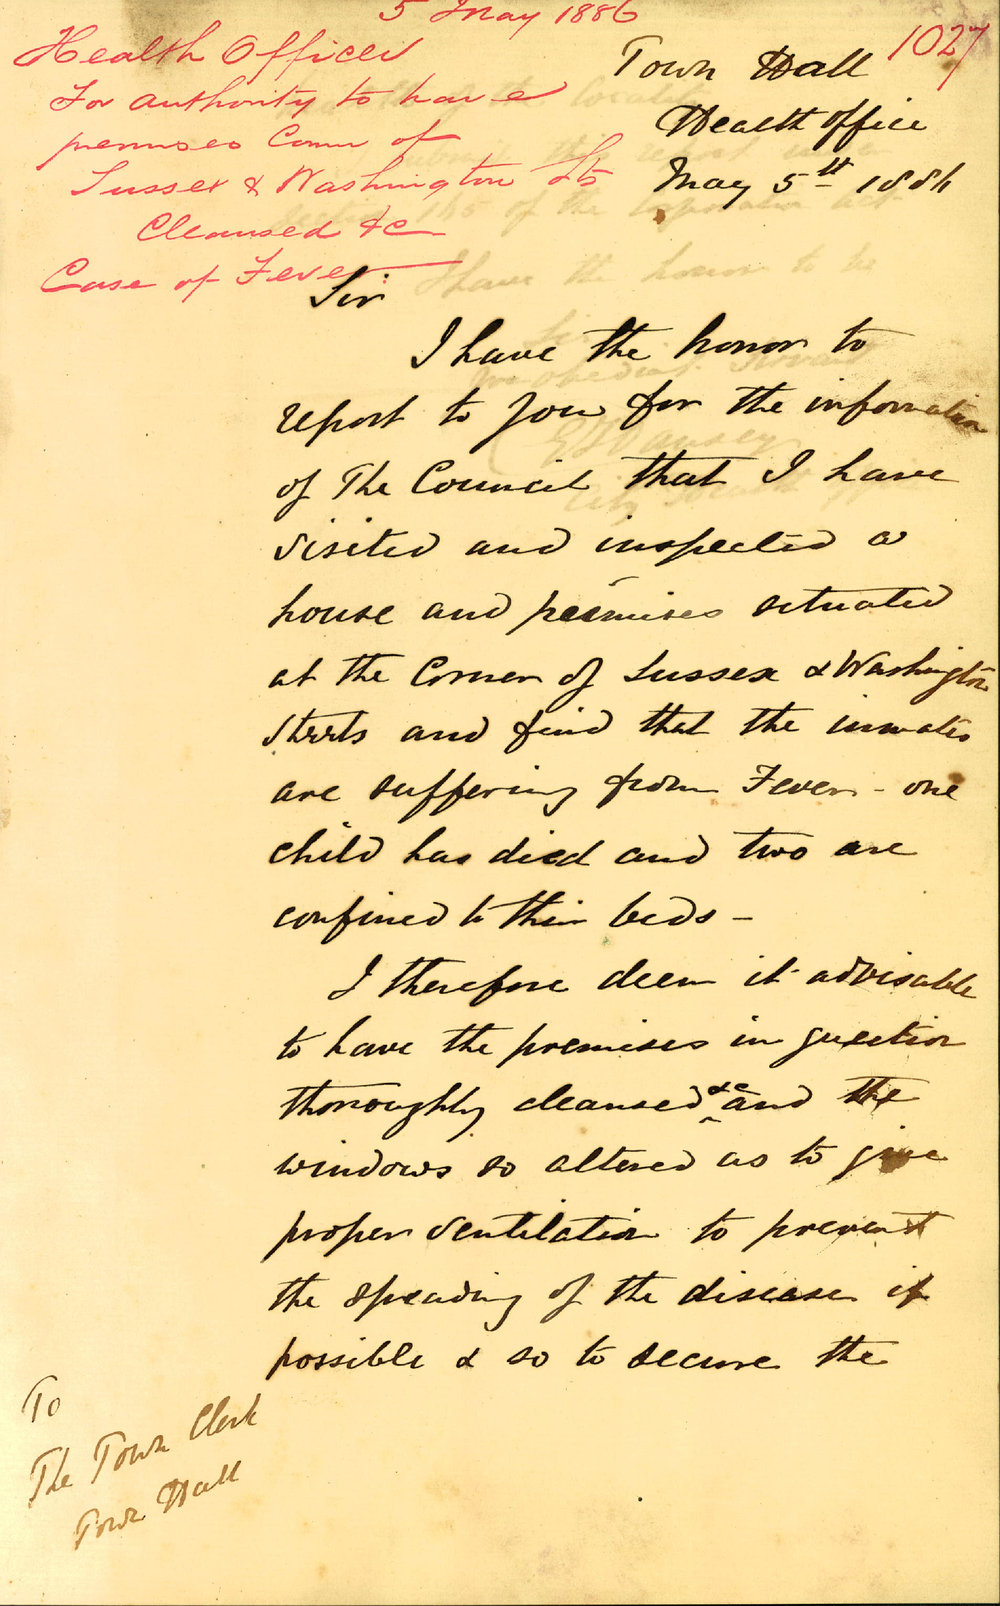 5 May 1886
1027
Health Officer
For authority to have
premises Corner of
Sussex & Washington Sts
Cleansed &c
Case of Fever
Town Hall
Health Office
May 5th 1886
Sir
I have the honor to
report to you for the information
of The Council that I have
visited and inspected a
house and premises situated
at the Corner of Sussex & Washington
Streets and find that the inmates
are suffering from Fever - one
child has died and two are
confined to their beds -
I therefore deem it advisable
to have the premises in question
thoroughly cleansed &c and the
windows so altered as to give
proper ventilation to prevent
the spreading of the disease if
possible & so to secure the
To
The Town Clerk
Town Hall